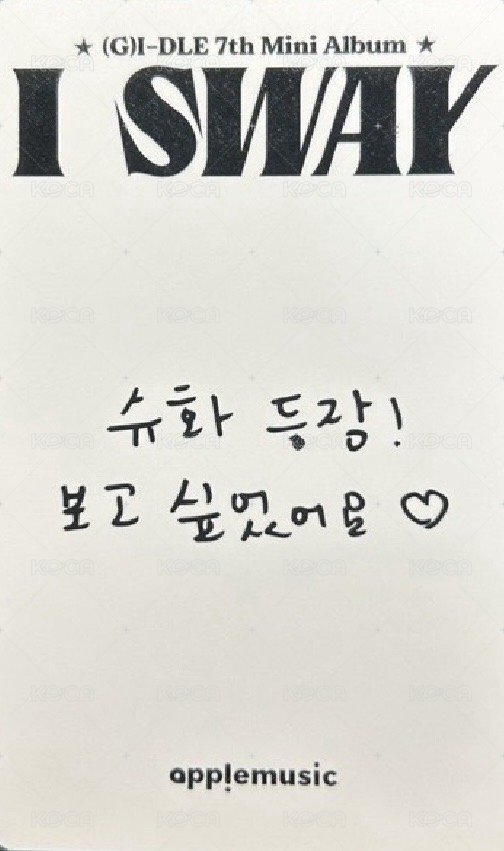 ★ (G)I-DLE 7th Mini Album ★
I SWAY
슈화 등장!
보고 싶었어요 ♡
applemusic